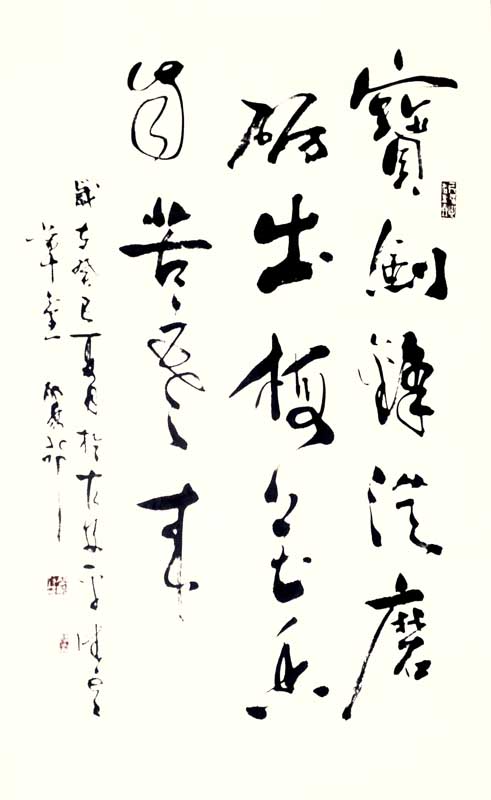 寶劍鋒從磨
礪出梅花香
自苦寒來
歲在癸巳夏月於